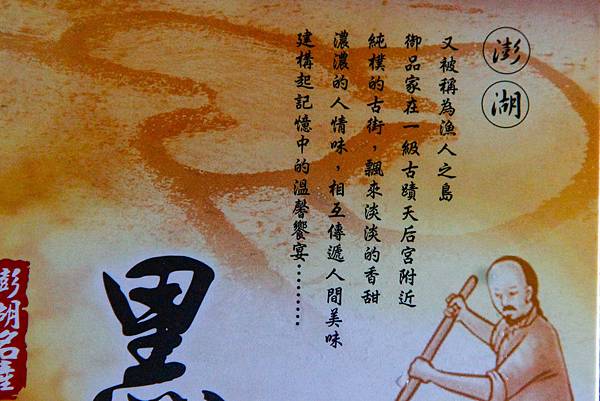 澎湖
又被稱為漁人之島
御品家在一級古蹟天后宮附近
純樸的古街，飄來淡淡的香甜
濃濃的人情味，相互傳遞人間美味
建構起記憶中的溫馨饗宴…………
黑
澎湖名產